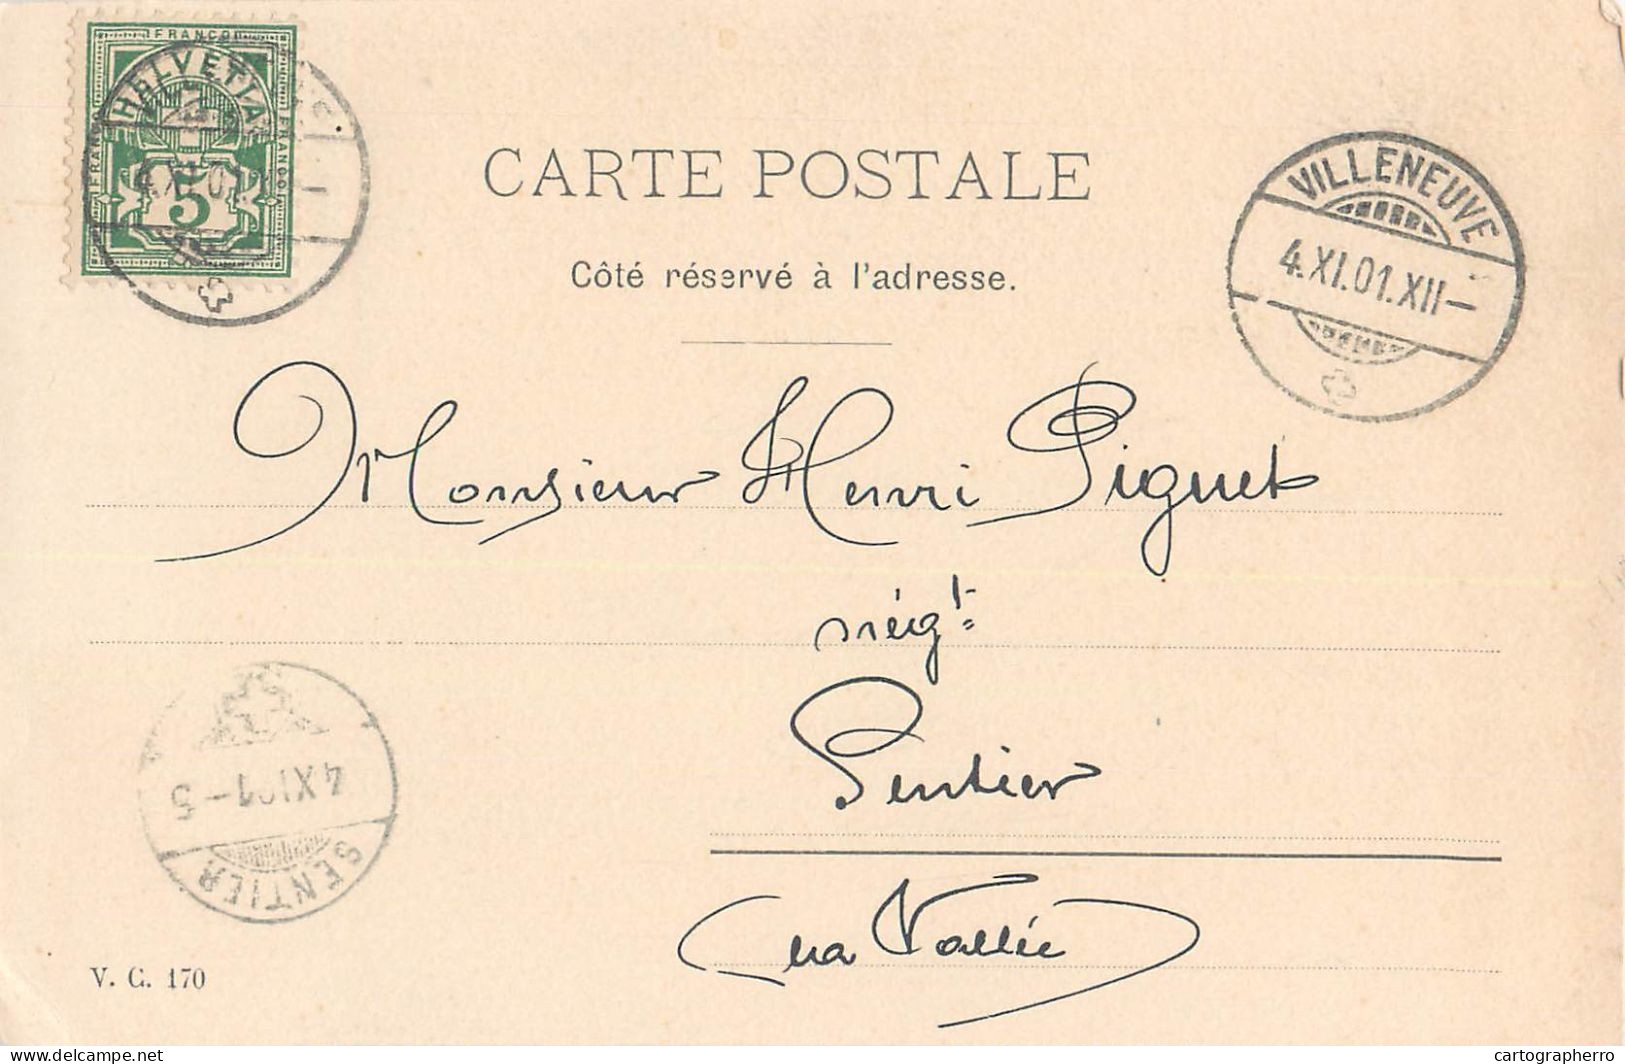 FRANCO
HELVETIA
FRANCO
FRANCO
5
CARTE POSTALE
VILLENEUVE
4.XI.01.XII–
Côté réservé à l'adresse.
Monsieur Henri Piguet
négt
Sentier
(La Vallée)
4 XI 01–5
SENTIER
V. G. 170
delcampe.net
cartographerro